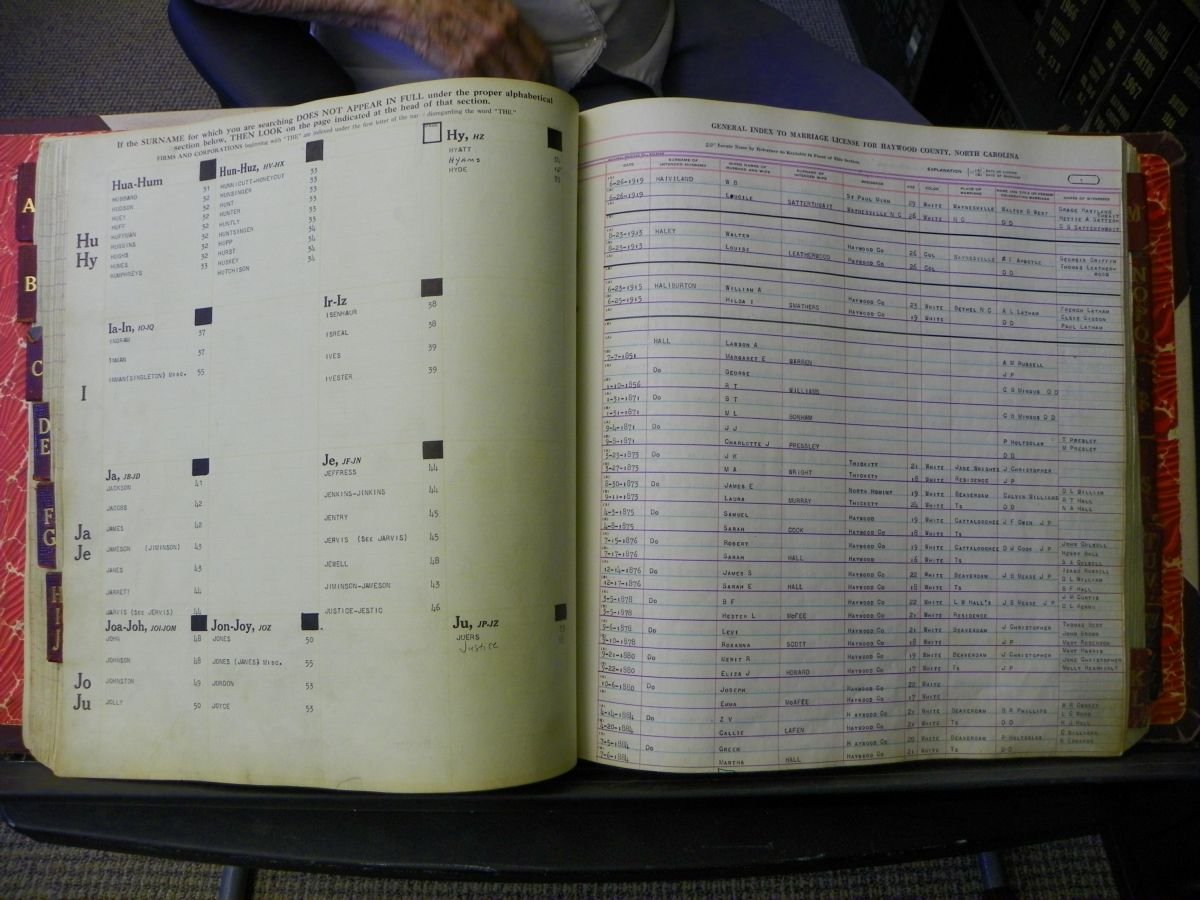 If the SURNAME for which you are searching DOES NOT APPEAR IN FULL under the proper alphabetical
section below, THEN LOOK on the page indicated at the head of that section.
FIRMS AND CORPORATIONS beginning with "THE" are indexed under the first letter of the disregarding the word "THE."
Hua-Hum
HUBBARD 31
HUDSON 32
HUEY 32
HUFF 32
HUFFMAN 32
HUGGINS 32
HUGHS 32
HUMES 32
HUMPHREYS 33
Hun-Huz, HV-HX
HUNNICUTT-HONEYCUT 33
HUNSINGER 33
HUNT 33
HUNTER 33
HUNTLY 33
HUNTSINGER 34
HUPP 34
HURST 34
HUSKEY 34
HUTCHISON
Hy, HZ
HYATT
Hyams
HYDE
Hu
Hy
Ia-In, IO-IQ
INGRAM 37
INMAN 37
INMAN(SINGLETON) Misc. 55
Ir-Iz
ISENHAUR 38
ISREAL 38
IVES 39
IVESTER 39
I
Ja, JB-JD
JACKSON 41
JACOBS 42
JAMES 42
JAMESON (JIMINSON) 43
JANES 43
JARRETT 44
JARVIS (SEE JERVIS) 44
Je, JF-JN
JEFFRESS 44
JENKINS-JINKINS 44
JENTRY 45
JERVIS (SEE JARVIS) 45
JEWELL 48
JIMINSON-JAMESON 43
JUSTICE-JESTIC 46
Ja
Je
Joa-Joh, JOI-JOM
JOHN 48
JOHNSON 48
JOHNSTON 49
JOLLY 50
Jon-Joy, JOZ
JONES 50
JONES (JANES) Misc. 55
JORDON 53
JOYCE 53
Ju, JP-JZ
JUERS
Justice
Jo
Ju
A
B
C
D
E
F
G
H
I
J
GENERAL INDEX TO MARRIAGE LICENSE FOR HAYWOOD COUNTY, NORTH CAROLINA
EXPLANATION
1
DATE
6-26-1919 HAIVILAND W B ST PAUL MINN 29 WHITE WAYNESVILLE WALTER S WEST GRACE HAVILAND
6-26-1919 LOUCILE SATTERTHWAIT WAYNESVILLE N C 26 WHITE N C D D
8-23-1913 HALEY WALTER HAYWOOD CO 26 COL WAYNESVILLE GEORGIA GRIFFIN
8-23-1913 LOUISE LEATHERWOOD HAYWOOD CO 26 COL D D THOMAS LEATHER-
WOOD
6-23-1915 HALIBURTON WILLIAM A HAYWOOD CO 23 WHITE BETHEL N C A L LATHAM FRENCH LATHAM
6-25-1915 HILDA I SMATHERS HAYWOOD CO 19 WHITE D D CLYDE GIBSON
PAUL LATHAM
HALL LAWSON A
7-7-1851 MARGARET E WARREN A M RUSSELL
Do GEORGE J P
1-10-1856 R T WILLIAMS
1-31-1871 Do B T C B MINGUS D D
1-31-1871 M L BONHAM C B MINGUS D D
9-4-1871 Do J J
9-8-1871 CHARLOTTE J PRESSLEY P HOLTSCLAW T PRESLEY
3-23-1873 Do J K THICKETY 21 WHITE JANE WRIGHTS J CHRISTOPHER M PRESLEY
3-27-1873 M A WRIGHT THICKETY 18 WHITE RESIDENCE J P
8-30-1873 Do JAMES E NORTH HOMINY 19 WHITE BEAVERDAM CALVIN WILLIAMS D L WILLIAM
9-11-1873 LAURA MURRAY THICKETY 24 WHITE TS D D R T HALL
N A HALL
4-3-1875 Do SAMUEL HAYWOOD 19 WHITE CATTALOOCHEE J F OWEN J P
4-8-1875 SARAH COOK HAYWOOD CO 18 WHITE TS
7-15-1876 Do ROBERT HAYWOOD CO 19 WHITE CATTALOOCHEE D J COOK J P
7-17-1876 SARAH HALL HAYWOOD 16 WHITE TS HENRY HALL
12-14-1876 Do JAMES S HAYWOOD CO 22 WHITE BEAVERDAM J S MEASE J P ISAAC RUSSELL
12-17-1876 SARAH E HALL HAYWOOD CO 18 WHITE TS D L WILLIAM
3-5-1878 Do B F HAYWOOD CO 22 WHITE L W HALL'S J S MEASE J P J W CURTIS
3-5-1878 HESTER L MCFEE HAYWOOD CO 21 WHITE RESIDENCE D L HENRY
9-6-1878 Do LEVI HAYWOOD CO 21 WHITE BEAVERDAM J CHRISTOPHER THOMAS BEST
9-10-1878 ROXANNA SCOTT HAYWOOD CO 18 WHITE J P JOHN BROWN
9-21-1880 Do MERIT R HAYWOOD CO 19 WHITE BEAVERDAM J CHRISTOPHER
9-22-1880 ELIZA J HOWARD HAYWOOD CO 17 WHITE TS J P JANE CHRISTOPHER
10-6-1880 Do JOSEPH HAYWOOD CO 22 WHITE
EMMA MCAFEE HAYWOOD CO 17 WHITE
4-14-1884 Do Z V HAYWOOD CO 21 WHITE BEAVERDAM S R PHILLIPS
4-20-1884 CALLIE LAFEN HAYWOOD CO 21 WHITE TS D D H J HALL
7-5-1884 Do GREEN HAYWOOD CO 20 WHITE BEAVERDAM P HOLTSCLAW
7-6-1884 MARTHA HALL HAYWOOD CO 21 WHITE TS D D
M
NOPQ
1966
1967